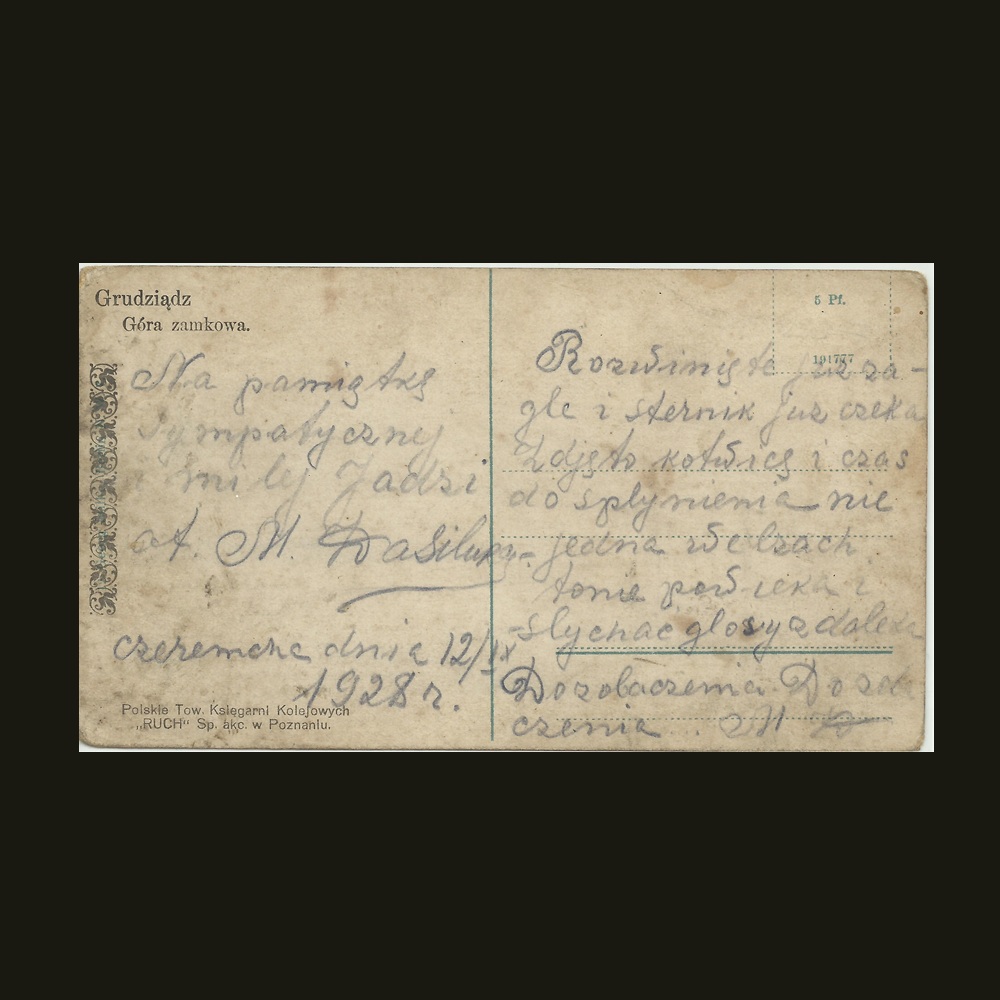 Grudziądz
Góra zamkowa.
Na pamiątkę
sympatycznej
i miłej Jadzi
od. M.
Czeremcha dnia 12/IX
1928 r.
Polskie Tow. Księgarni Kolejowych
„RUCH“ Sp. akc. w Poznaniu.
5 Pf.
191777
Rozwinięte już ża-
gle i sternik już czeka
Zdjęto kotwicę i czas
do spłynienia nie
jedna we łzach
tonie powieka i
słychac głosy z daleka
Dozobaczenia Dozoba
czenia .. M